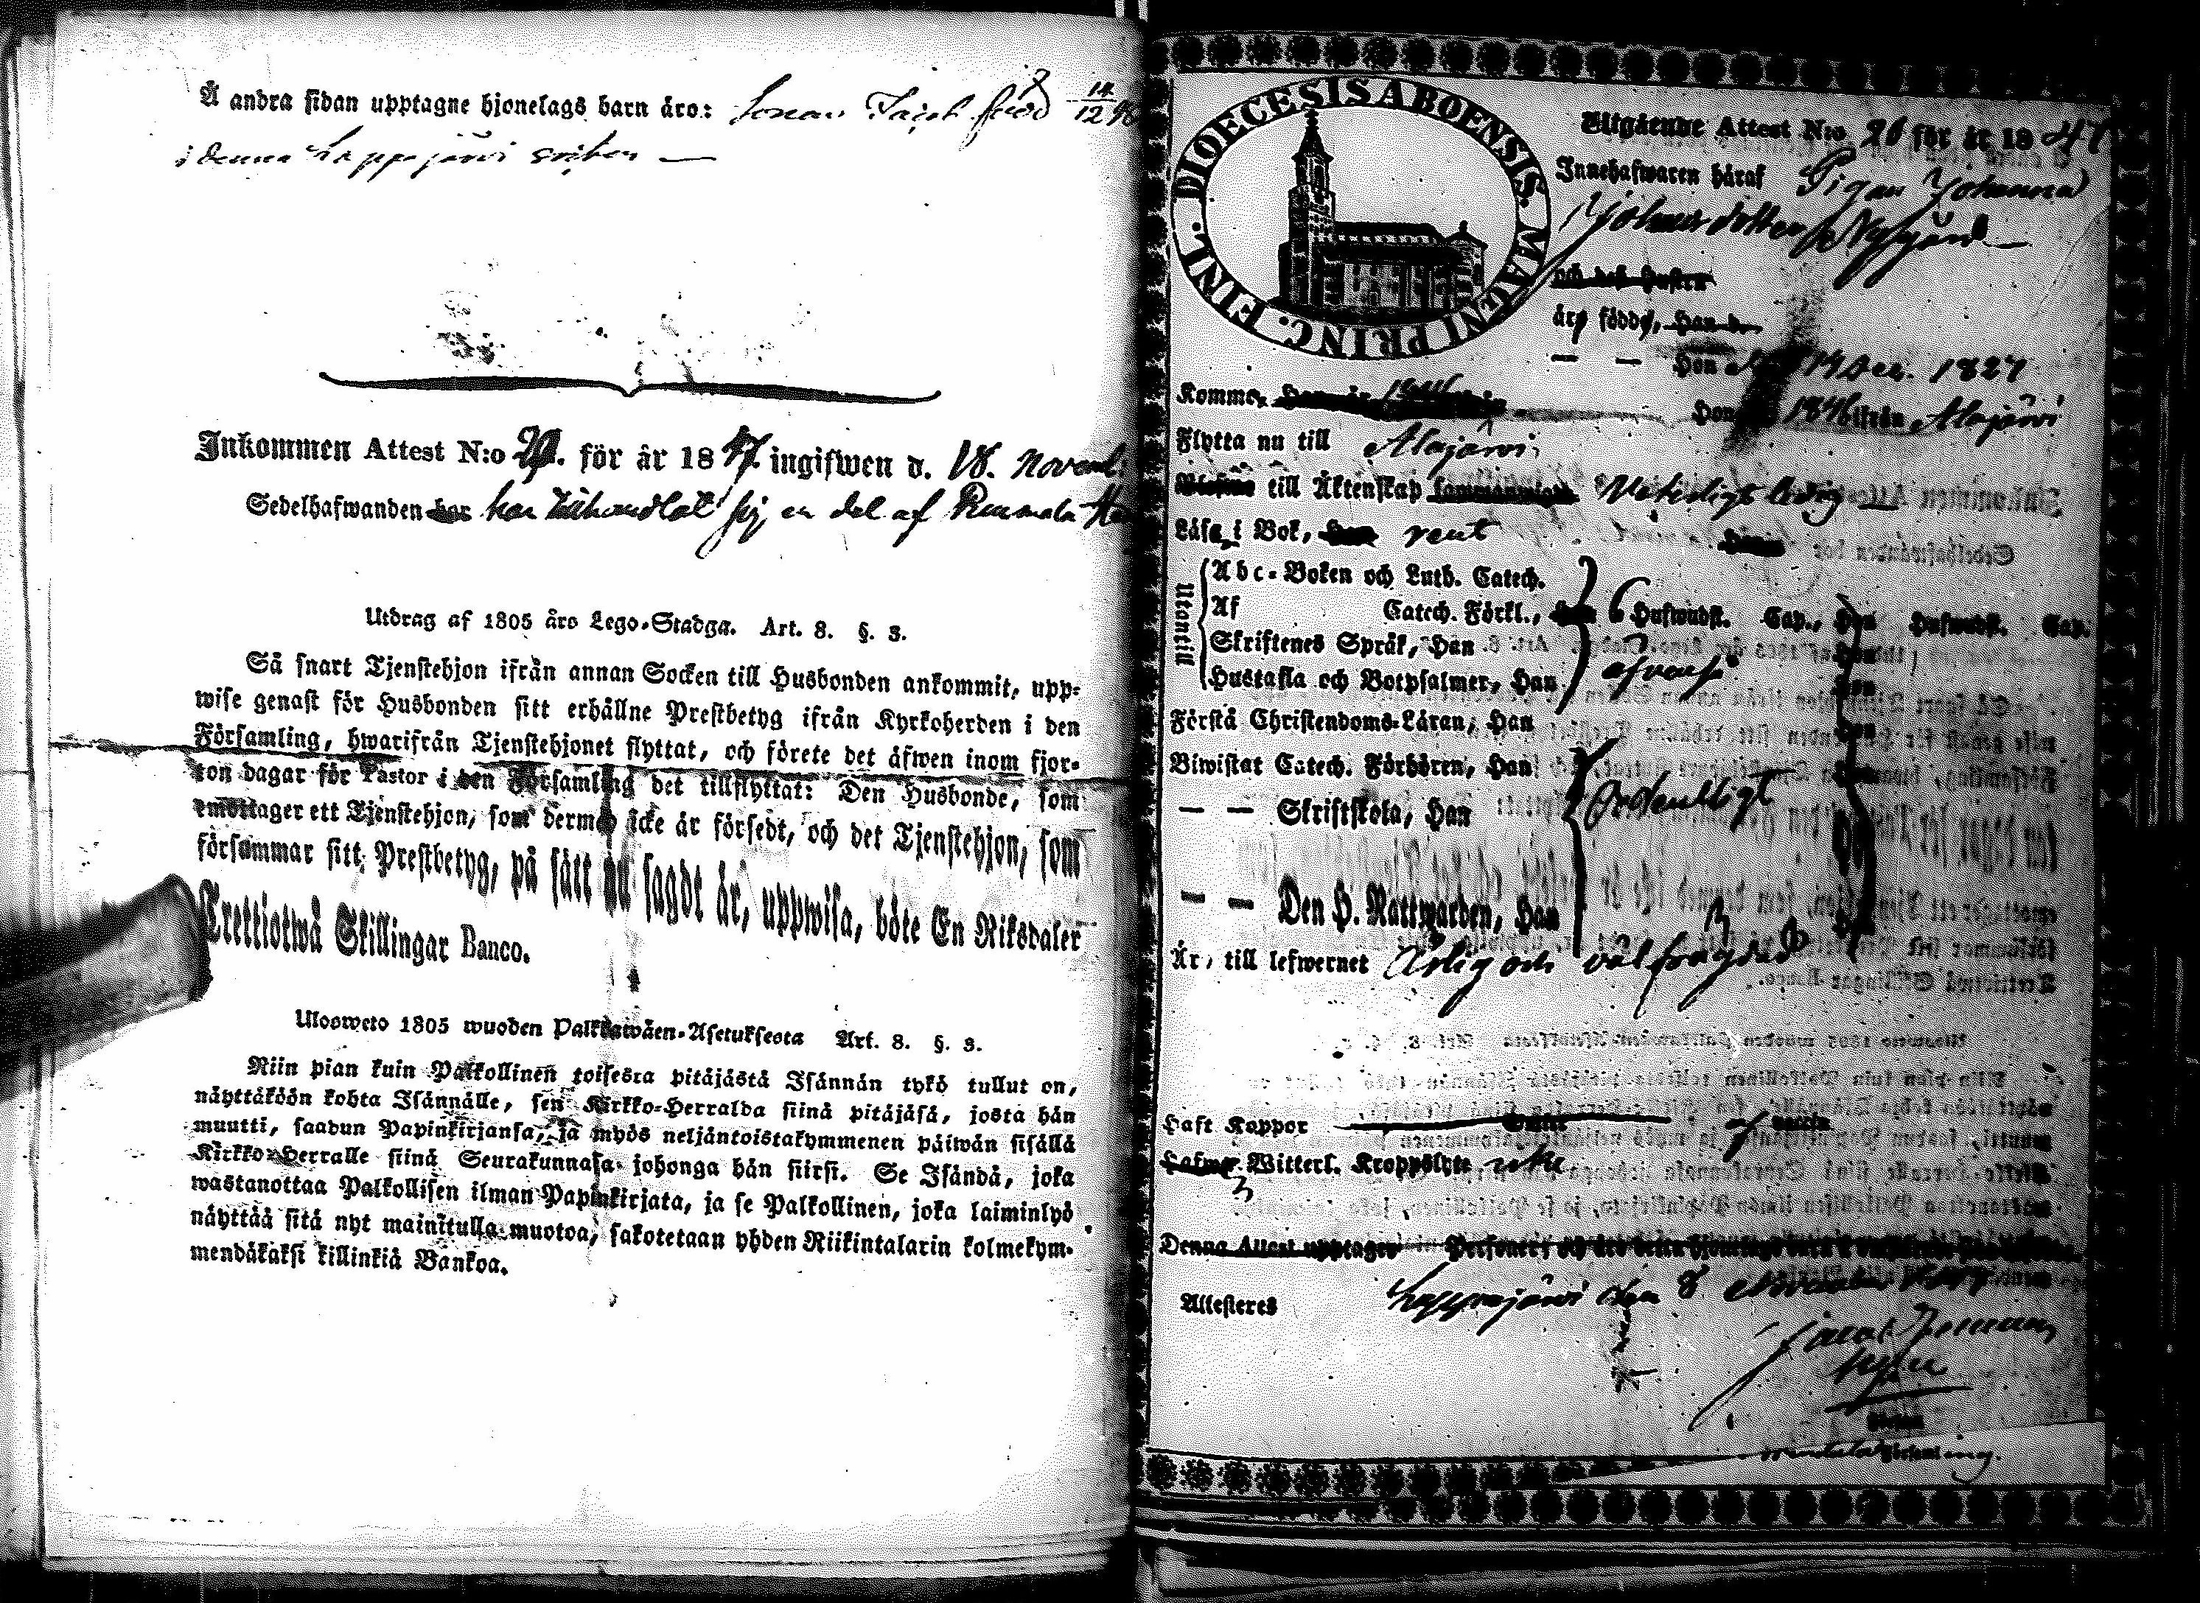 Å andra sidan upptagne hjonelags barn äro: Sonen Jacob född 14/12 46
i denna Lappajärvi socken —
Inkommen Attest N:o för år 1847 ingifwen d. 18. Novemb.
Sedelhafwanden har har tillhandlat sig en del af
Utdrag af 1805 års Lego-Stadga. Art. 8. §. 3.
Så snart Tjenstehjon ifrån annan Socken till Husbonden ankommit, upp-
wise genast för Husbonden sitt erhållne Prestbetyg ifrån Kyrkoherden i den
Församling, hwarifrån Tjenstehjonet flyttat, och förete det äfwen inom fjor-
ton dagar för Pastor i den Församling det tillflyttat: Den Husbonde, som
emottager ett Tjenstehjon, som dermed icke är försedt, och det Tjenstehjon, som
försummar sitt Prestbetyg, på sätt nu sagdt är, uppwisa, böte En Riksdaler
Trettiotwå Skillingar Banco.
Ulosweto 1805 wuoden Palkkawäen-Asetuksesta Art. 8. §. 3.
Niin pian kuin Palkollinen toisesta pitäjästä Isännän tykö tullut on,
näyttäköön kohta Isännälle, sen Kirkko-Herralda siinä pitäjäsä, josta hän
muutti, saadun Papinkirjansa, ja myös neljäntoistakymmenen päiwän sisällä
Kirkko-Herralle siinä Seurakunnasa johonga hän siirsi. Se Isändä, joka
wastanottaa Palkollisen ilman Papinkirjata, ja se Palkollinen, joka laiminlyö
näyttää sitä nyt mainitulla muotoa, sakotetaan yhden Riikintalarin kolmekym-
mendäkaksi killinkiä Bankoa.
DIOECESIS ABOENSIS. MAGNI PRINC. FINL.
Utgående Attest N:o 20 för år 1847
Innehafwaren häraf Pigan Johanna
Johansdotter Nygård —
och deß Hustru
äro födde, Han d.
— — Hon 14 Dec. 1827
Kommo Hon 1846 ifrån Alajärvi
Flytta nu till Alajärvi
till Äktenskap Veterligt ledig
Läsa i Bok, Han rent
Utantill
Abc-Boken och Luth. Catech.
Af Catech. Förkl., Han 6 Hufwudst. Cap., Hon Hufwudst. Cap.
Skriftenes Språk, Han
Hustafla och Botpsalmer, Han
Förstå Christendoms-Läran, Han
Biwistat Catech. Förhören, Han
— — Skriftskola, Han Ordentligt
— — Den H. Nattwarden, Han
Är till lefwernet Ärlig och väl frägdad
Haft Koppor
Witterl. Kroppslyte icke
Denna Attest upptager Personer
Attesteres Lappajärvi den 8 November 1847